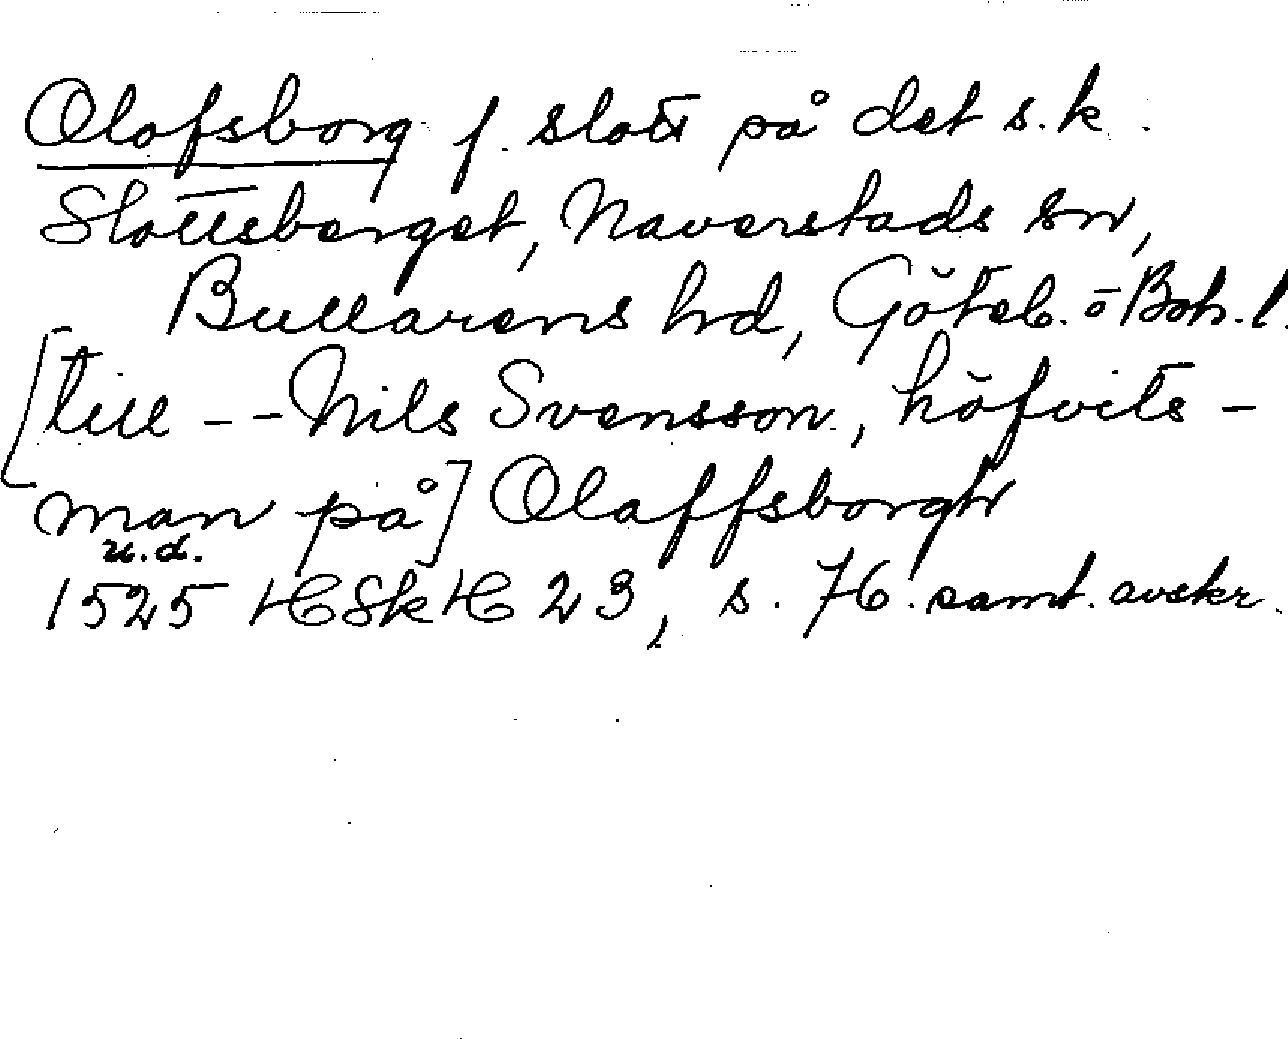 Olofsborg f. slott på det s.k.
Slottsberget, Naverstads sn,
Bullarens hd, Göteb. o Boh. l.
[till - - Nils Svensson, höfvits-
man på] Olaffsborgh
u.d.
1525 HSkH 23, s. 76. samt. avskr.